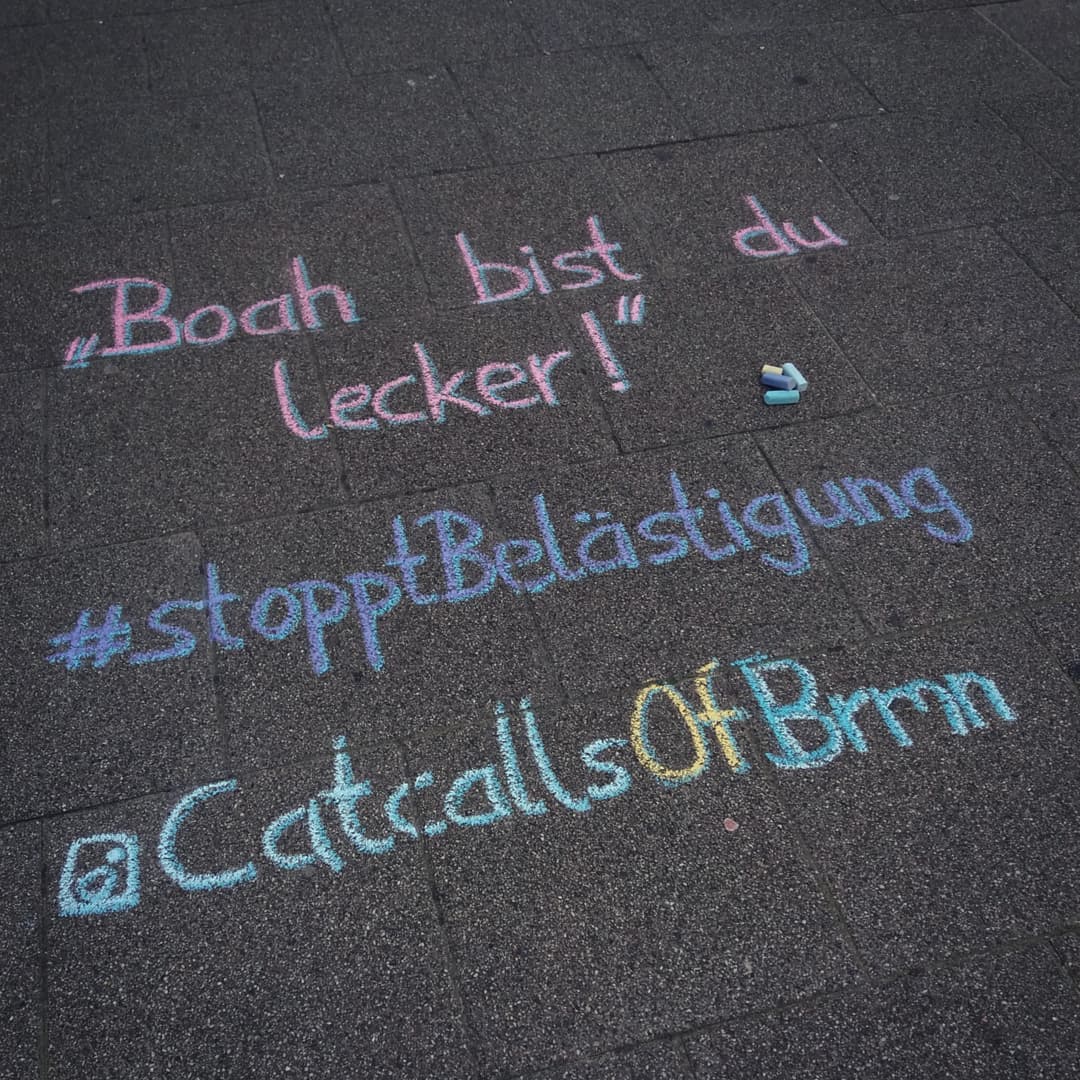 „Boah bist du
lecker!“
#stopptBelästigung
@CatcallsOfBrmn